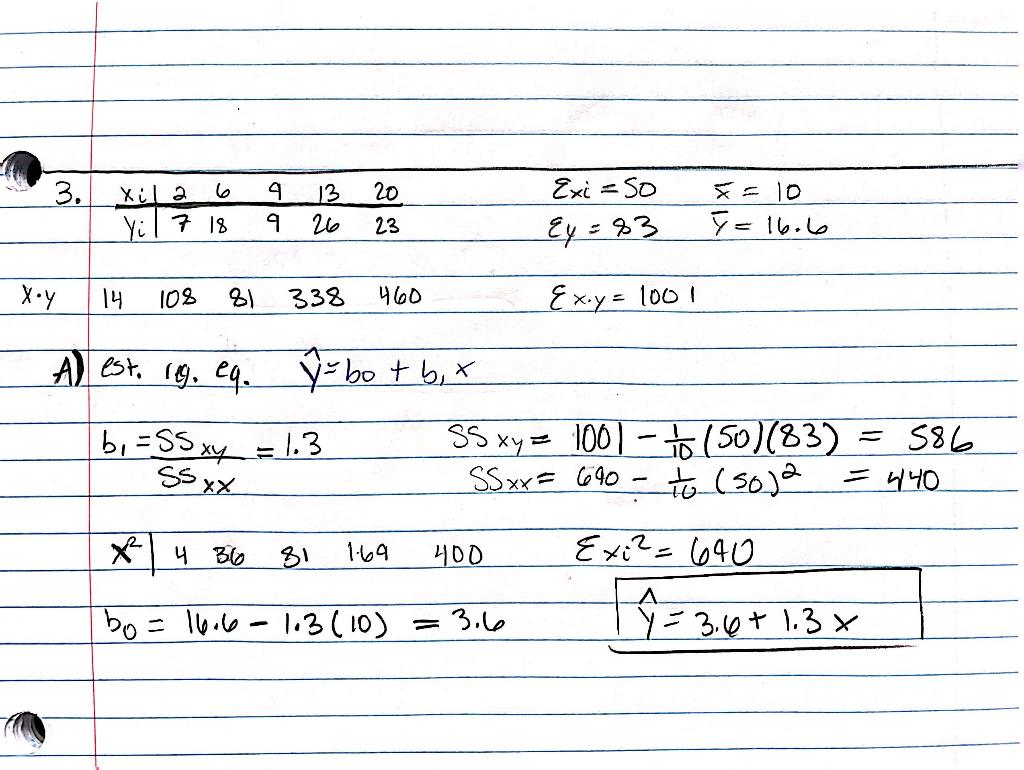 3. xi | 2 6 9 13 20 Σxi = 50 x̄ = 10
Yi | 7 18 9 26 23 Σy = 83 ȳ = 16.6
X·y | 14 108 81 338 460 Σx·y = 1001
A) est. rg. eq. ŷ = b0 + b1 x
b1 = SSxy / SSxx = 1.3 SSxy = 1001 - 1/10 (50)(83) = 586
SSxx = 690 - 1/10 (50)² = 440
X² | 4 36 81 169 400 Σxi² = 690
b0 = 16.6 - 1.3(10) = 3.6 ŷ = 3.6 + 1.3 x